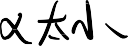 α太小